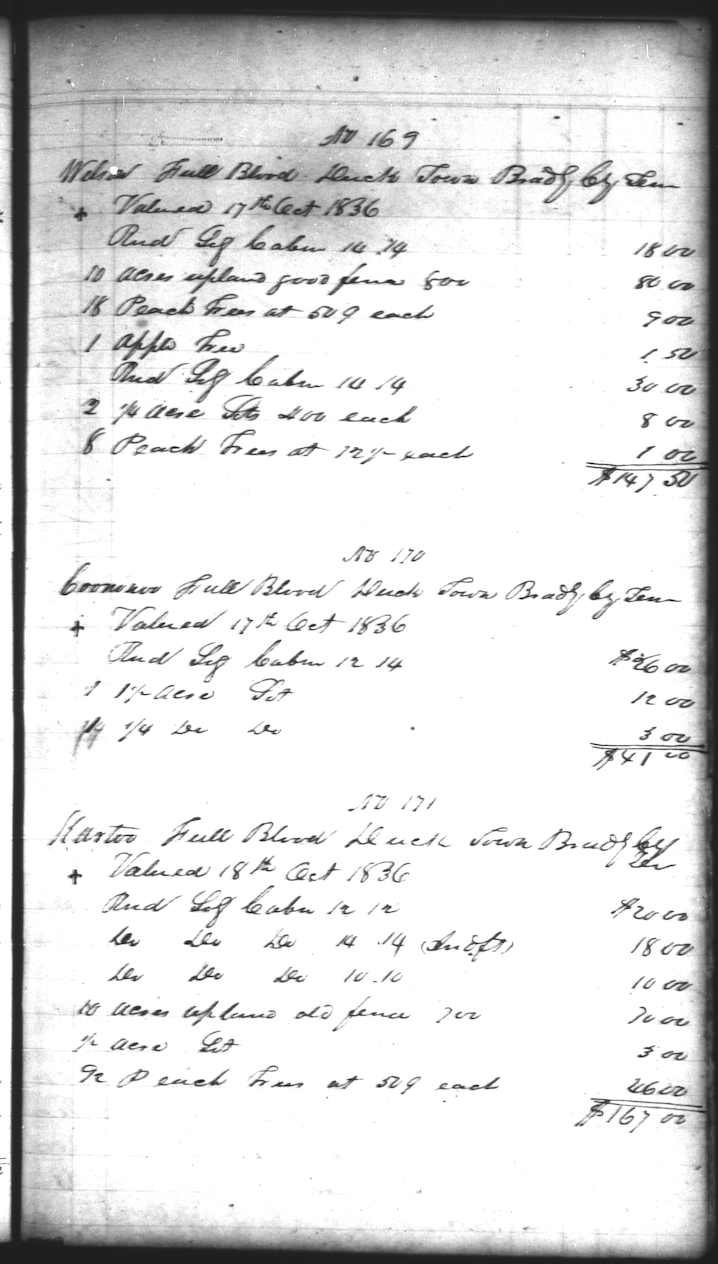 No 169
Wilson Full Blood Duck Town Bradf Cy Ten
+ Valued 17th Oct 1836
Rnd Log Cabin 14 .14 18 00
10 acres upland good fence 800 80 00
18 Peach Trees at 50 ¢ each 9 00
1 Apple Tree 1 50
Rnd Log Cabin 14 14 30 00
2 1/4 acre Lots 400 each 8 00
8 Peach Trees at 12 1/2 each 1 00
$147 50
No 170
Full Blood Duck Town Bradf Cy Ten
+ Valued 17th Oct 1836
Rnd Log Cabin 12 14 $26 00
1 1/2 acre Lot 12 00
1/4 Do Do 3 00
$41 00
No 171
Full Blood Duck Town Bradf Cy
Ten
+ Valued 18th Oct 1836
Rnd Log Cabin 12 12 $20 00
Do Do Do 14 .14 18 00
Do Do Do 10 .10 10 00
10 acres upland old fence 700 70 00
1/2 acre Lot 3 00
92 Peach Trees at 50 ¢ each 46 00
$167 00